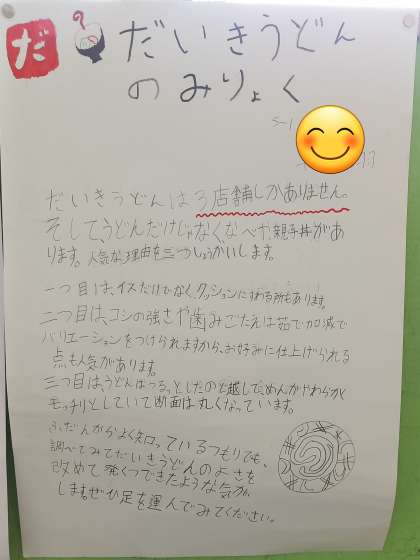 だ
だいきうどん
のみりょく
5-1
だいきうどんは3店舗しかありません。
そして、うどんだけじゃなく、なべや、親子丼があ
ります。人気な理由を三つしょうかいします。
一つ目は、イスだけでなく、クッションにすわる所もあります。
二つ目は、コシの強さや歯みごたえは茹で加減で
バリエーションをつけられますから、お好みに仕上げられる
点も人気があります。
三つ目は、うどんはつるっとしたのど越しで、めんがやわらかく
モッチリとしていて断面は丸くなっています。
ふだんからよく知っているつもりでも、
調べてみてだいきうどんのよさを
改めて発くつできたような気が
します。ぜひ足を運んでみてください。